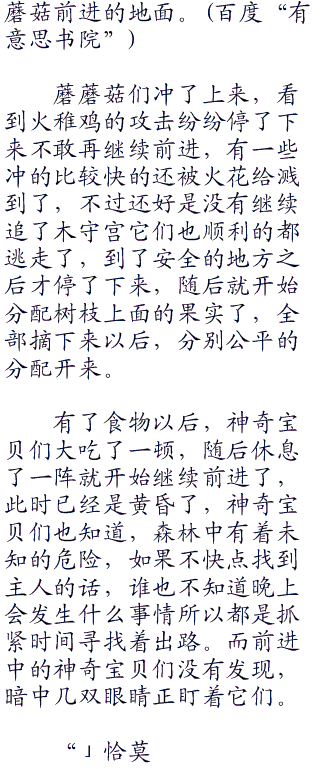 蘑菇前进的地面。(百度“有
意思书院”)
蘑蘑菇们冲了上来，看
到火稚鸡的攻击纷纷停了下
来不敢再继续前进，有一些
冲的比较快的还被火花给溅
到了，不过还好是没有继续
追了木守宫它们也顺利的都
逃走了，到了安全的地方之
后才停了下来，随后就开始
分配树枝上面的果实了，全
部摘下来以后，分别公平的
分配开来。
有了食物以后，神奇宝
贝们大吃了一顿，随后休息
了一阵就开始继续前进了，
此时已经是黄昏了，神奇宝
贝们也知道，森林中有着未
知的危险，如果不快点找到
主人的话，谁也不知道晚上
会发生什么事情所以都是抓
紧时间寻找着出路。而前进
中的神奇宝贝们没有发现，
暗中几双眼睛正盯着它们。
“」恰莫